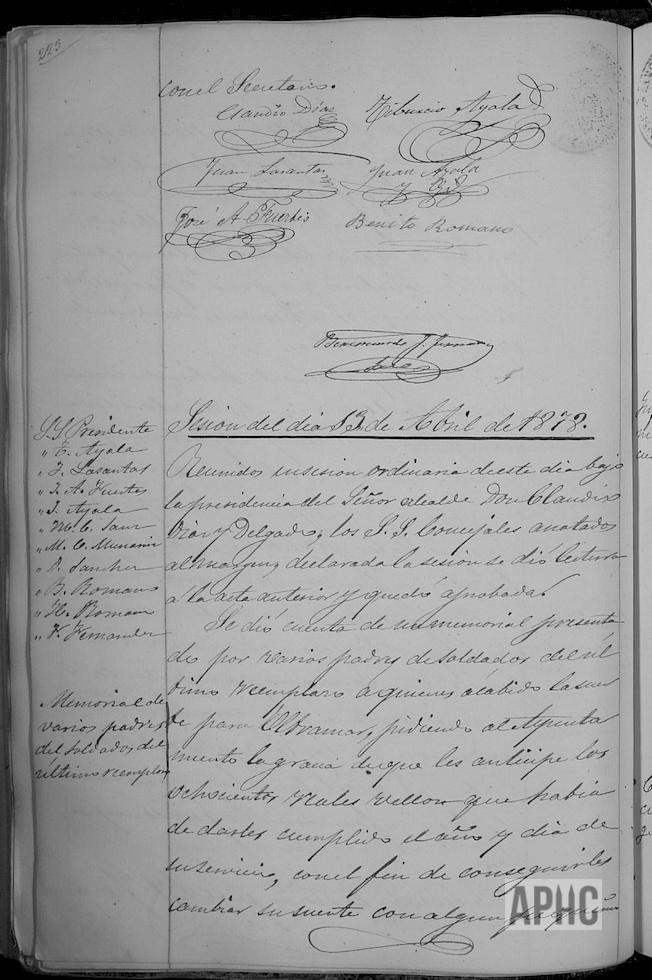 223
con el Secretario.
Claudio Díaz
Tiburcio Ayala
Juan Lasantas
Juan Ayala
y Gil
José A. Fuertes
Benito Romano
Sesion del dia 13 de Abril de 1878.
S.S. Presidente
" T. Ayala
" J. Lasantas
" J. A. Fuertes
" J. Ayala
" M. C. Sanz
" M. C. Munarriz
" P. Sanchez
" B. Romano
" H. Roman
" V. Fernandez
Reunidos en sesion ordinaria de este dia bajo
la presidencia del Señor alcalde Don Claudio
Diaz y Delgado, los S.S. Concejales anotados
al margen, declarada la sesion se dió lectura
a la acta anterior y quedó aprobada.
Memorial de
varios padres
de soldados del
último reemplazo
Se dió cuenta de un memorial presenta
do por varios padres de soldados del úl
timo reemplazo a quienes a cabido la suer
te para Ultramar, pidiendo al Ayunta
miento la gracia de que les anticipe los
ochocientos reales vellon que habia
de darles cumplido el año y dia de
su servicio, con el fin de conseguirles
cambiar su suerte con algun
APHC